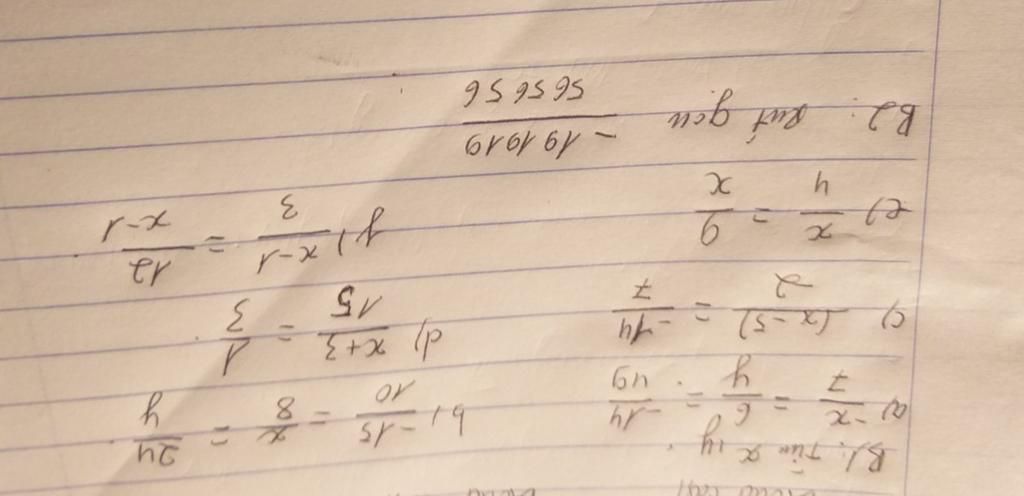 B1: Tìm x, y
a) -x/7 = 6/y = -14/49 b) -15/10 = x/8 = 24/y
c) (x-5)/2 = -14/7 d) x+3/15 = 1/3
e) x/4 = 9/x g) x-1/3 = 12/x-1
B2: Rút gọn -191919/565656